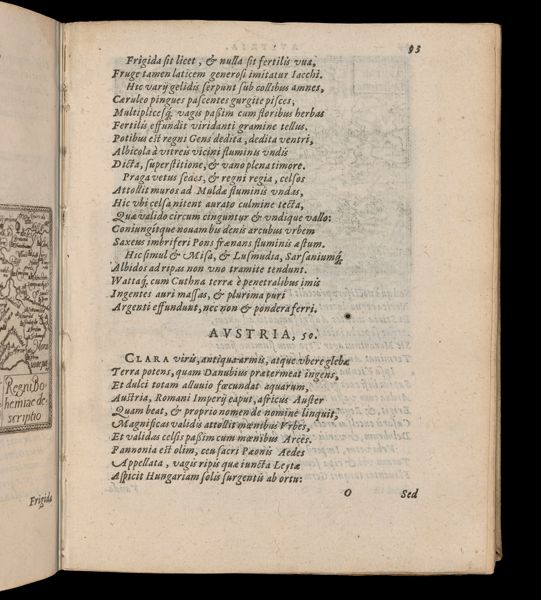 Regni Bo-
hemiae de-
scriptio
Frigida
93
Frigida sit licet, & nulla sit fertilis vua,
Fruge tamen laticem generosi imitatur Iacchi.
Hic varij gelidis serpunt sub collibus amnes,
Cæruleo pingues pascentes gurgite pisces,
Multiplicesq́; vagis paßim cum floribus herbas
Fertilis effundit viridanti gramine tellus.
Potibus est regni Gens dedita, dedita ventri,
Albicola à vitreis vicini fluminis vndis
Dicta, superstitione, & vano plena timore.
Praga vetus sedes, & regni regia, celsos
Attollit muros ad Muldæ fluminis vndas,
Hic vbi celsa nitent aurato culmine tecta,
Quæ valido circum cinguntur & vndique vallo:
Coniungitque nouam bis denis arcubus vrbem
Saxeus imbriferi Pons frænans fluminis æstum.
Hic simul & Misa, & Lusmudia, Sarsaniumq́;
Albidos ad ripas non vno tramite tendunt.
Wattaq́; cum Cuthna terræ è penetralibus imis
Ingentes auri massas, & plurima puri
Argenti effundunt, nec non & pondera ferri.
AVSTRIA, 50.
CLARA viris, antiqua armis, atque vbere glebæ
Terra potens, quam Danubius prætermeat ingens,
Et dulci totam alluuio fœcundat aquarum,
Austria, Romani Imperij caput, africus Auster
Quam beat, & proprio nomen de nomine linquit,
Magnificas validis attollit mœnibus Vrbes,
Et validas celsis paßim cum mœnibus Arces.
Pannonia est olim, ceu sacra Pæonis Aedes
Appellata, vagis ripis quæ iuncta Leytæ
Aspicit Hungariam solis surgentis ab ortu:
O
Sed